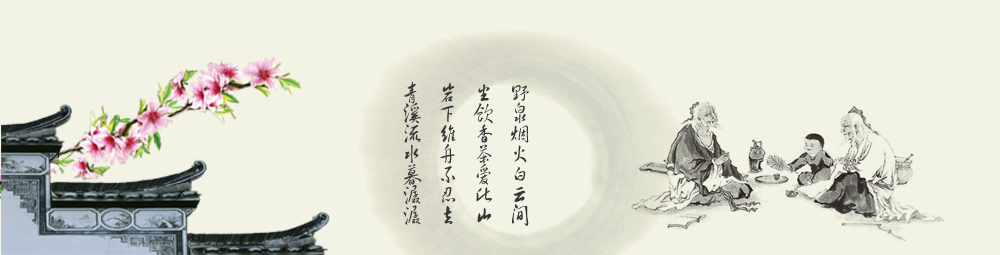 野泉烟火白云间
坐飲香茶愛此山
岩下維舟不忍去
青溪流水暮潺潺